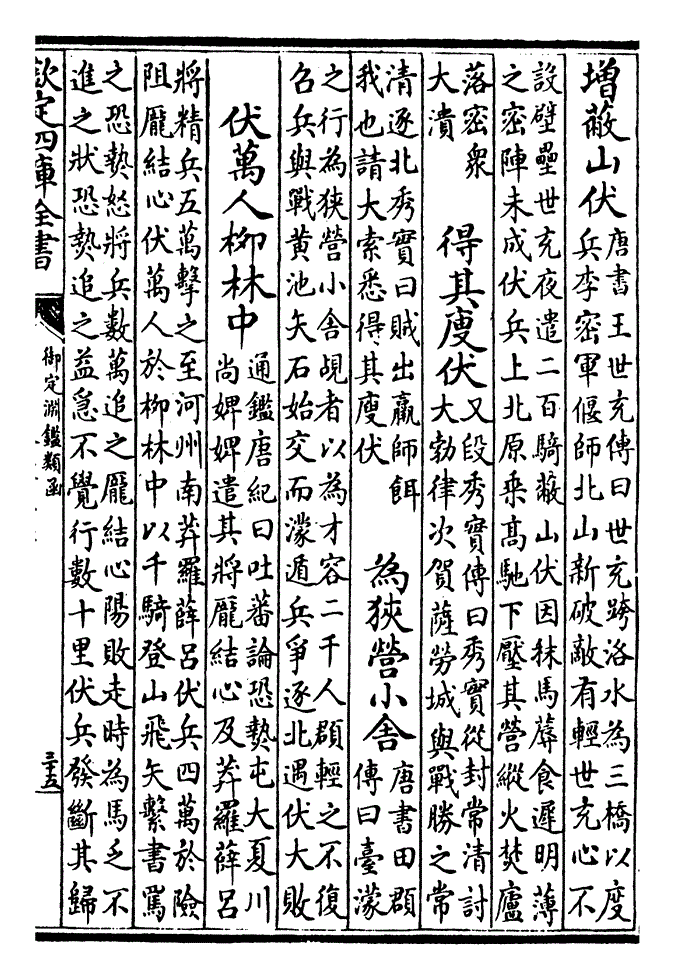 增蔽山伏
唐書王世充傳曰世充跨洛水為三橋以度
兵李密軍偃師北山新破敵有輕世充心不
設壁壘世充夜遣二百騎蔽山伏因秣馬蓐食遲明薄
之密陣未成伏兵上北原乗髙馳下壓其營縱火焚廬
落密衆
大潰
得其廋伏
又段秀實傳曰秀實從封常清討
大勃律次賀薩勞城與戰勝之常
清逐北秀實曰賊出羸師餌
我也請大索悉得其廋伏
為狹營小舎
唐書田頵
傳曰臺濛
之行為狹營小舎覘者以為才容二千人頵輕之不復
召兵與戰黄池矢石始交而濛遁兵爭逐北遇伏大敗
伏萬人栁林中
通鑑唐紀曰吐蕃論恐熱屯大夏川
尚婢婢遣其將龎結心及莽羅薛呂
將精兵五萬擊之至河州南莽羅薛呂伏兵四萬於險
阻龎結心伏萬人於栁林中以千騎登山飛矢繫書罵
之恐熱怒將兵數萬追之龎結心陽敗走時為馬乏不
進之狀恐熱追之益急不覺行數十里伏兵發斷其歸
欽定四庫全書
御定淵鑑類函
三十五